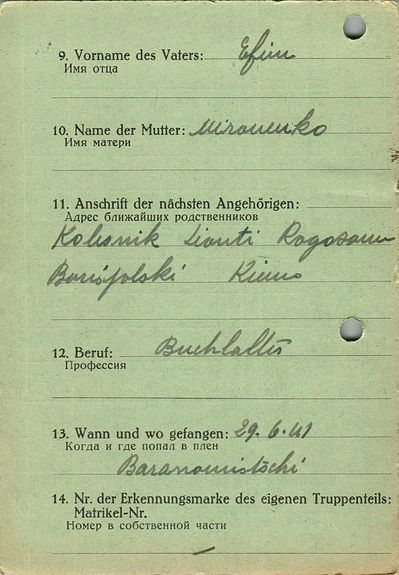 9. Vorname des Vaters: Efim
Имя отца
10. Name der Mutter: Mironenko
Имя матери
11. Anschrift der nächsten Angehörigen:
Адрес ближайших родственников
Kolesnik Lionti Rogosow
Borispolski Kiew
12. Beruf: Buchhalter
Профессия
13. Wann und wo gefangen: 29.6.41
Когда и где попал в плен
Baranowitschi
14. Nr. der Erkennungsmarke des eigenen Truppenteils:
Matrikel-Nr.
Номер в собственной части
—